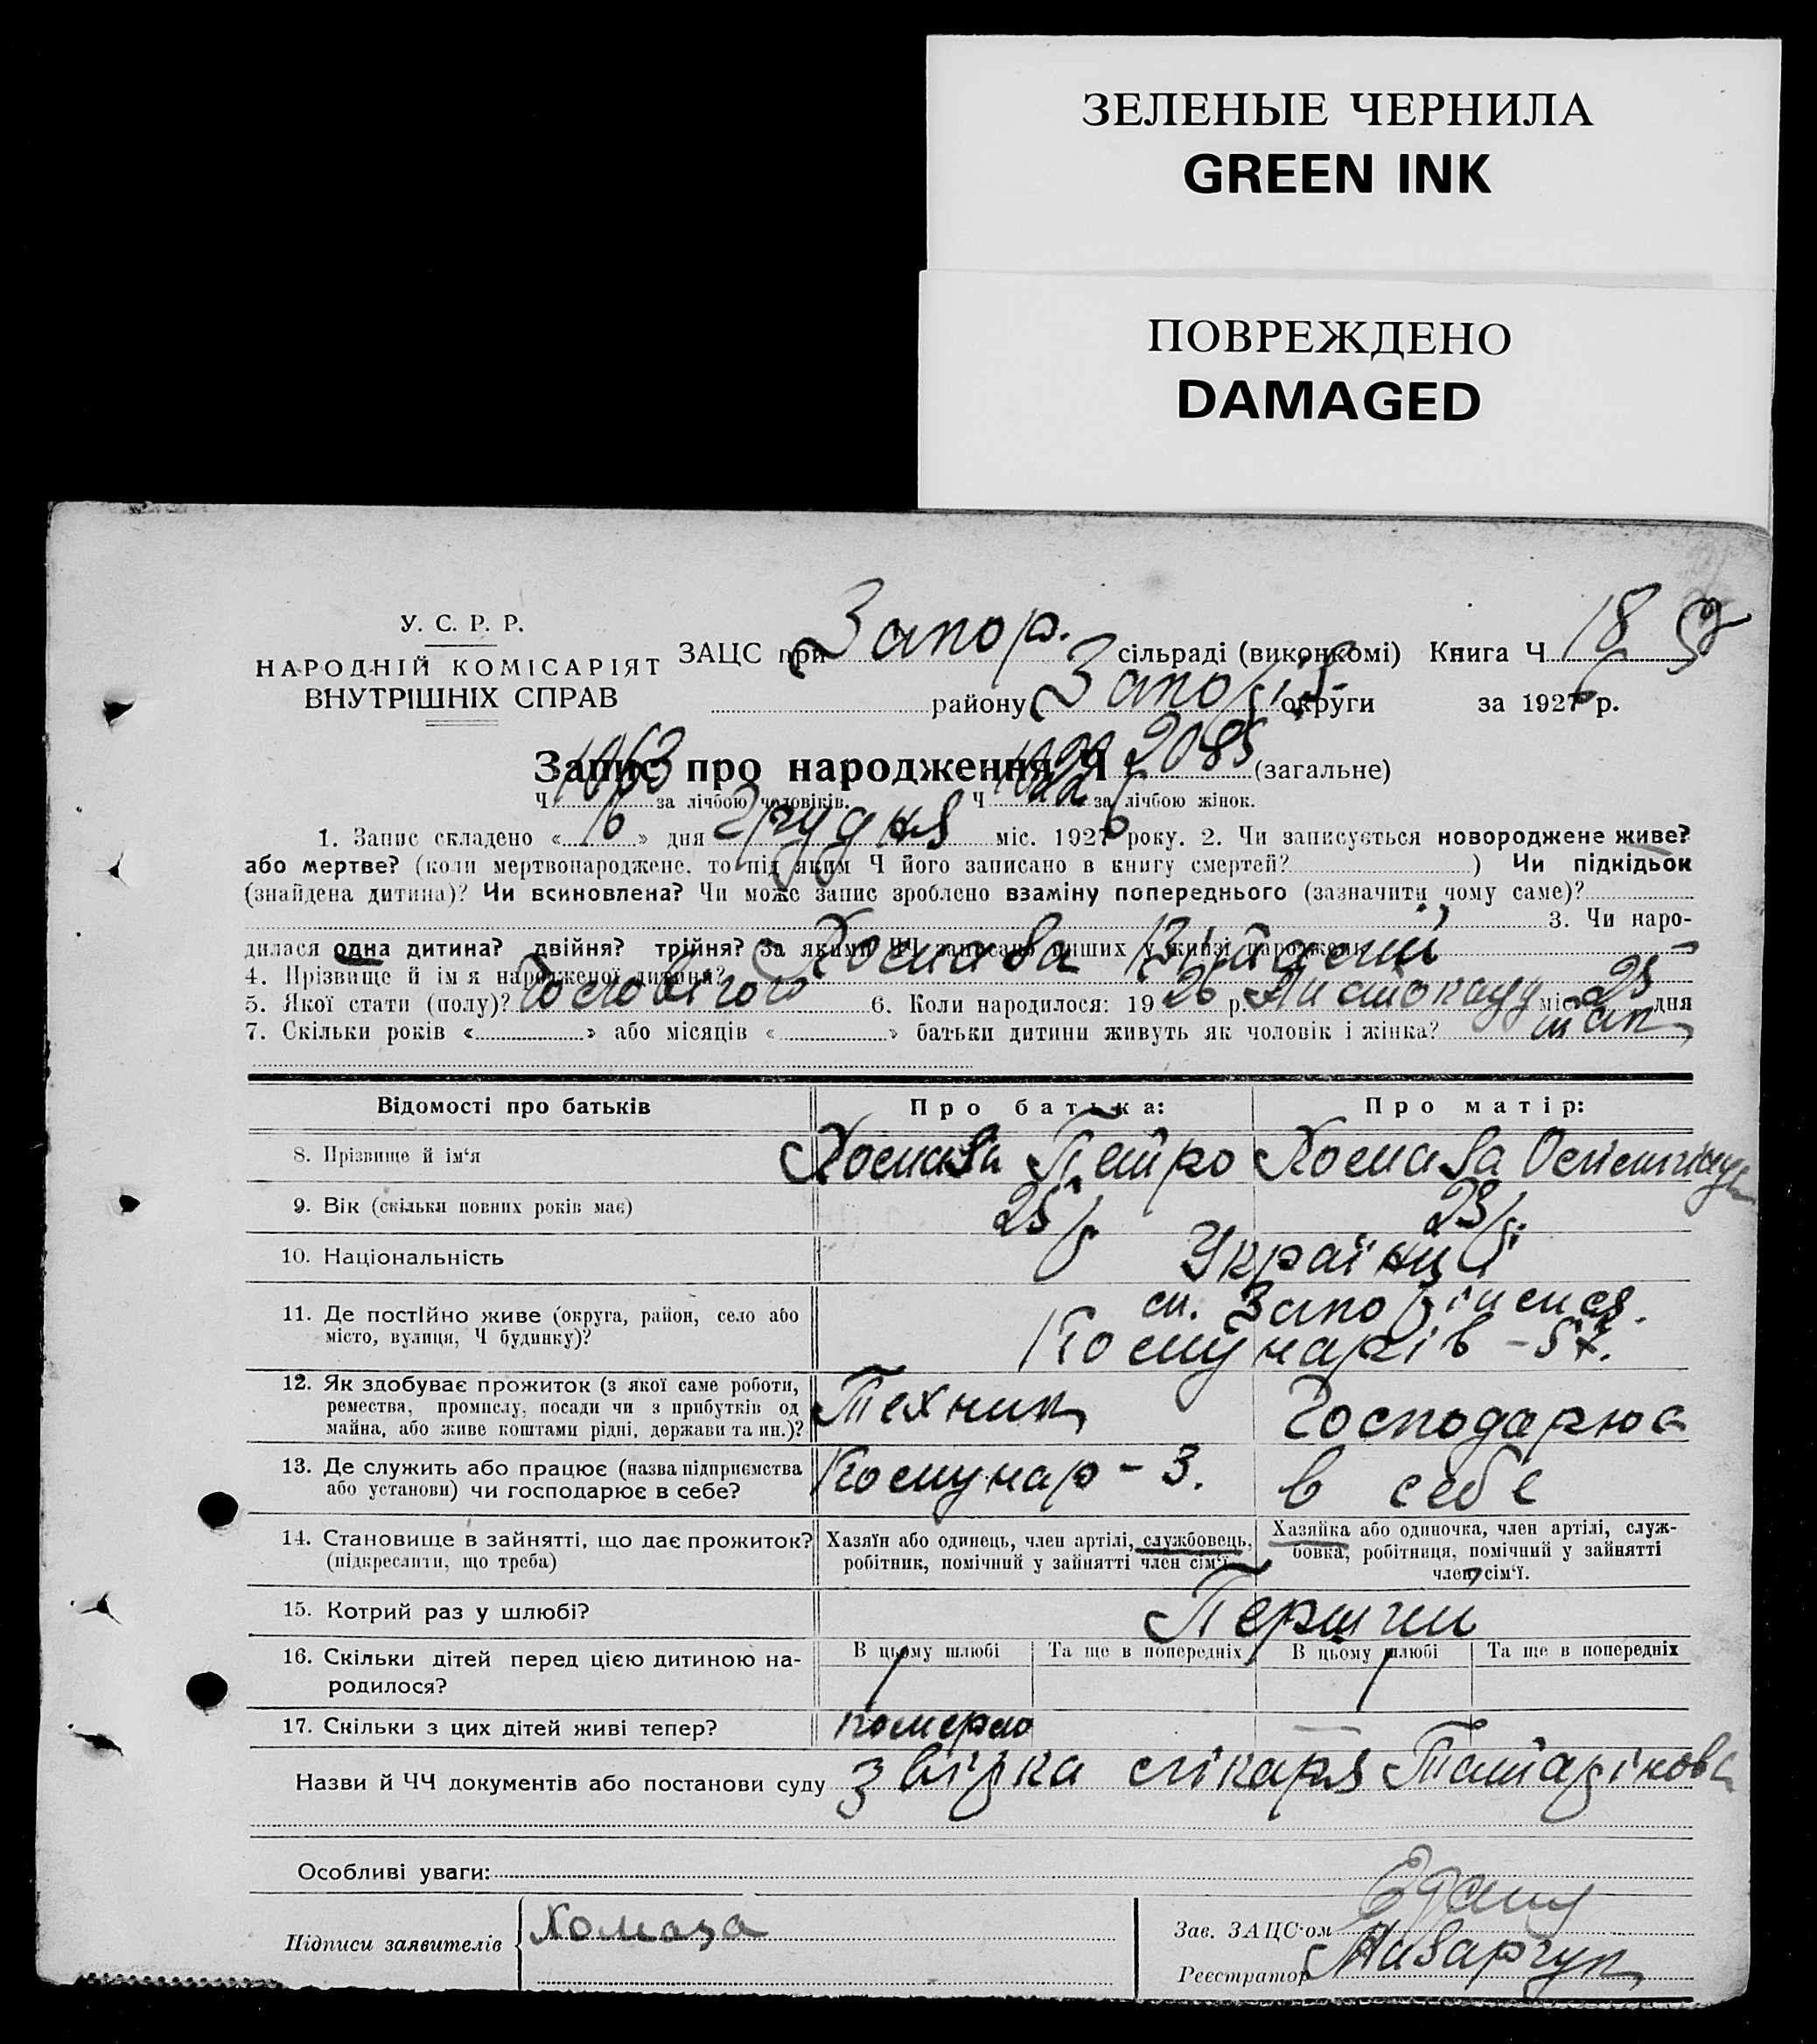 ЗЕЛЕНЫЕ ЧЕРНИЛА
GREEN INK
ПОВРЕЖДЕНО
DAMAGED
У. С. Р. Р.
НАРОДНІЙ КОМІСАРІЯТ
ВНУТРІШНІХ СПРАВ
ЗАЦС при Запор. сільраді (виконкомі) Книга Ч 18
району Запоріз. округи за 1926 р.
Запис про народження Ч 2085 (загальне)
Ч 1063 за лічбою чоловіків. Ч 1022 за лічбою жінок.
1. Запис складено « 16 » дня Грудня міс. 1926 року. 2. Чи записується новороджене живе?
або мертве? (коли мертвонароджене, то під яким Ч його записано в книгу смертей? ) Чи підкідьок
(знайдена дитина)? Чи всиновлена? Чи може запис зроблено взаміну попереднього (зазначити чому саме)?
3. Чи наро-
дилася одна дитина? двійня? трійня? За якими ЧЧ записано инших у книзі народжень
4. Прізвище й ім'я народженої дитини? Хомаза Віталій
5. Якої стати (полу)? Чоловічого 6. Коли народилося: 1926 р. Листопаду міс. 25 дня
7. Скільки років « » або місяців « » батьки дитини живуть як чоловік і жінка? так
Відомості про батьків Про батька: Про матір:
8. Прізвище й ім'я Хомаза Петро Хомаза
9. Вік (скільки повних років має) 25 р. 23 р.
10. Національність Українці
11. Де постійно живе (округа, район, село або
місто, вулиця, Ч будинку)?
м. Запоріжжя.
Комунарів – 57.
12. Як здобуває прожиток (з якої саме роботи,
ремества, промислу, посади чи з прибутків од
майна, або живе коштами рідні, держави та ин.)?
Техник Господарює
13. Де служить або працює (назва підприємства
або установи) чи господарює в себе?
Комунар – 3. в себе
14. Становище в зайнятті, що дає прожиток?
(підкреслити, що треба)
Хазяїн або одинець, член артілі, службовець,
робітник, помічний у зайнятті член сім'ї.
Хазяйка або одиночка, член артілі, служ-
бовка, робітниця, помічний у зайнятті
член сім'ї.
15. Котрий раз у шлюбі? Перший
16. Скільки дітей перед цією дитиною на-
родилося?
В цьому шлюбі Та ще в попередніх В цьому шлюбі Та ще в попередніх
1 1
17. Скільки з цих дітей живі тепер? померло —
Назви й ЧЧ документів або постанови суду звірка лікаря Татарінова
Особливі уваги:
Підписи заявителів Хомаза
Зав. ЗАЦС-ом
Реєстратор